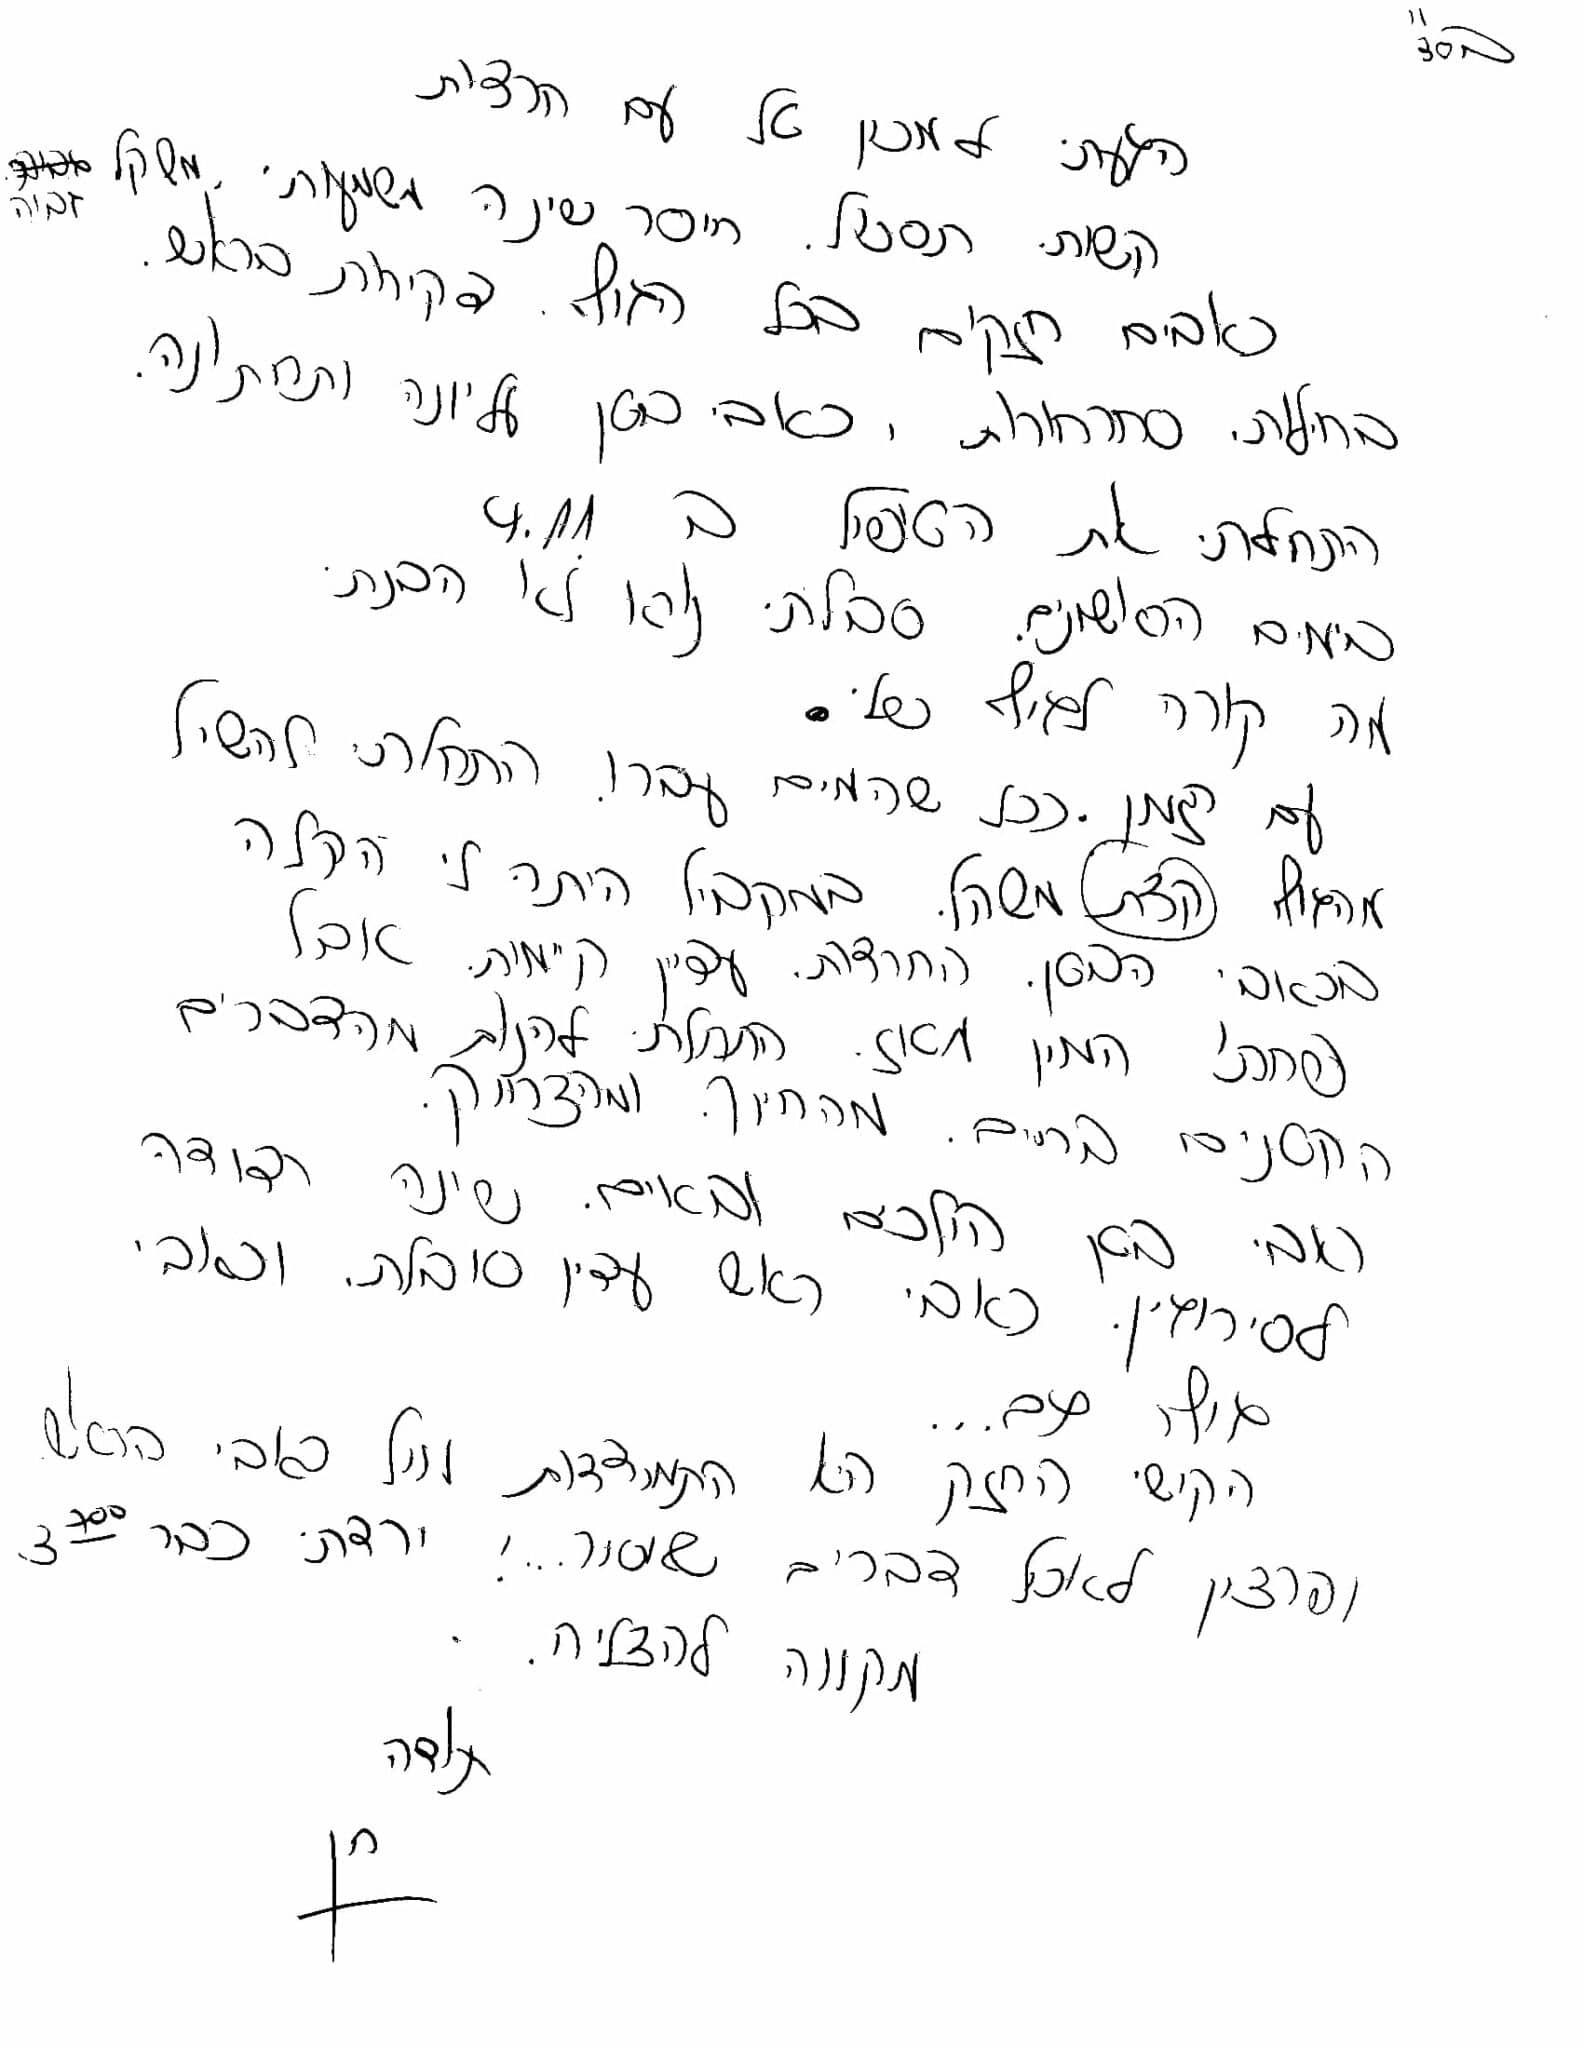 בסד"
הגעתי למכון טל עם חרדות
קשות תסכול. חוסר שינה משמעותי, משקל
גבוה
כאבים חזקים בכל הגוף. דקירות בראש.
בחילות, סחרחורות, כאבי בטן עליונה ותחתונה.
התחלתי את הטיפול ב 4.11
בימים הראשונים. סבלתי נורא לא הבנתי
מה קורה לגוף שלי.
עם הזמן. ככל שהימים עברו. התחלתי להשיל
מהגוף (קצת) משקל. במקביל היתה לי הקלה
בכאבי הבטן. החרדות. עדיין קיימות. אבל
פחות המון מאז. התחלתי להנות מהדברים
הקטנים ברים. מהחיוך. ומהצחוק.
כאבי בטן הולכים ובאים. שינה רדודה
לסירוגין. כאבי ראש עדיין סובלת. וכאבי
גוף גם...
הקושי החזק הוא התמודדות מול כאבי הראש
ופרצין לאכול דברים שאסור...! ירדתי כבר 3.700
מקווה להצליח.
תודה
חן